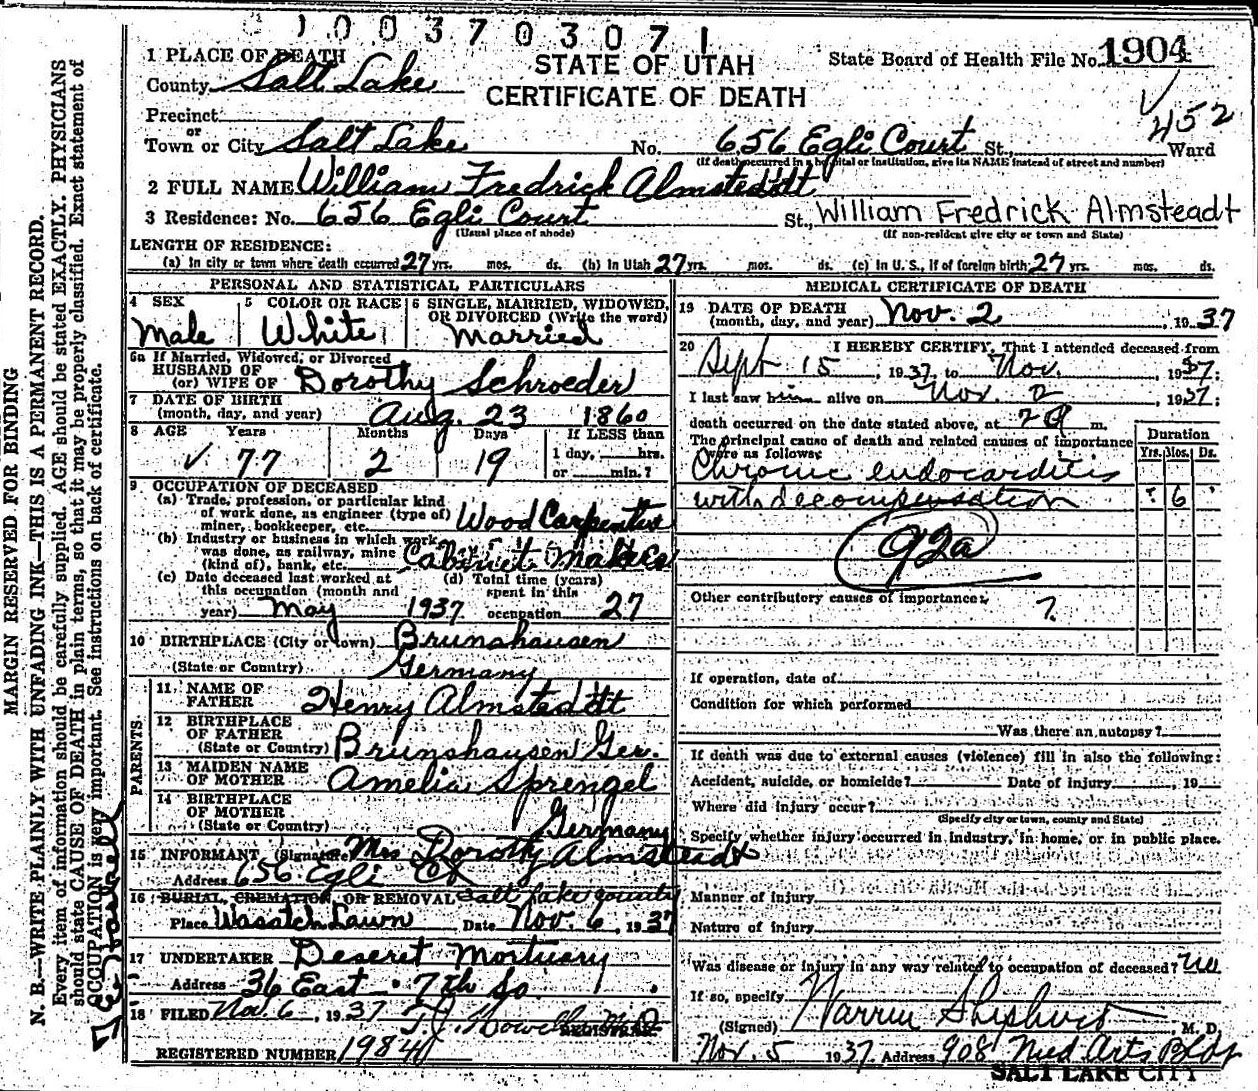 1003703071
1 PLACE OF DEATH
STATE OF UTAH
State Board of Health File No. 1904
County Salt Lake
CERTIFICATE OF DEATH
452
Precinct
or
Town or City Salt Lake No. 656 Egli Court St., Ward
(If death occurred in a hospital or institution, give its NAME instead of street and number)
2 FULL NAME William Fredrick Almsteddt
3 Residence: No. 656 Egli Court St., William Fredrick Almsteadt
(Usual place of abode) (If non-resident give city or town and State)
LENGTH OF RESIDENCE:
(a) In city or town where death occurred 27 yrs. mos. ds. (b) In Utah 27 yrs. mos. ds. (c) In U. S., if of foreign birth 27 yrs. mos. ds.
PERSONAL AND STATISTICAL PARTICULARS
4 SEX
Male
5 COLOR OR RACE
White
6 SINGLE, MARRIED, WIDOWED,
OR DIVORCED (Write the word)
Married
6a If Married, Widowed, or Divorced
HUSBAND OF
(or) WIFE OF Dorothy Schroeder
7 DATE OF BIRTH
(month, day, and year) Aug. 23 1860
8 AGE Years Months Days If LESS than
✓ 77 2 19 1 day, hrs.
or min.?
9 OCCUPATION OF DECEASED
(a) Trade, profession, or particular kind
of work done, as engineer (type of)
miner, bookkeeper, etc. Wood Carpenter
(b) Industry or business in which work
was done, as railway, mine
(kind of), bank, etc. Cabinet Maker
(c) Date deceased last worked at
this occupation (month and
year) May 1937
(d) Total time (years)
spent in this
occupation 27
10 BIRTHPLACE (City or town) Brunshausen
(State or Country) Germany
PARENTS
11 NAME OF
FATHER Henry Almsteddtt
12 BIRTHPLACE
OF FATHER
(State or Country) Brunshausen Ger.
13 MAIDEN NAME
OF MOTHER Amelia Sprengel
14 BIRTHPLACE
OF MOTHER
(State or Country) Germany
15 INFORMANT (Signature) Mrs Dorothy Almsteadt
Address 656 Egli Ct
16 BURIAL, CREMATION, OR REMOVAL Salt Lake County
Place Wasatch Lawn Date Nov. 6, 1937
17 UNDERTAKER Deseret Mortuary
Address 36 East 7th So.
18 FILED Nov. 6, 1937 T.J. Howells M.D.
REGISTRAR
REGISTERED NUMBER 1984
MEDICAL CERTIFICATE OF DEATH
19 DATE OF DEATH
(month, day, and year) Nov. 2, 1937
20 I HEREBY CERTIFY, That I attended deceased from
Sept 15, 1937, to Nov. 1937:
I last saw him alive on Nov. 2 1937:
death occurred on the date stated above, at m.
The principal cause of death and related causes of importance
were as follows:
Duration
Yrs. Mos. Ds.
Chronic endocarditis
with decompensation 6
92a
Other contributory causes of importance:
?
If operation, date of
Condition for which performed
Was there an autopsy?
If death was due to external causes (violence) fill in also the following:
Accident, suicide, or homicide? Date of injury, 19
Where did injury occur?
(Specify city or town, county and State)
Specify whether injury occurred in industry, in home, or in public place.
Manner of injury
Nature of injury
Was disease or injury in any way related to occupation of deceased? no
If so, specify
(Signed) Warren Shepherd, M. D.
Nov. 5 1937. Address 908 Med Arts Bldg
SALT LAKE CITY
MARGIN RESERVED FOR BINDING
N. B.—WRITE PLAINLY WITH UNFADING INK—THIS IS A PERMANENT RECORD.
Every item of information should be carefully supplied. AGE should be stated EXACTLY. PHYSICIANS
should state CAUSE OF DEATH in plain terms, so that it may be properly classified. Exact statement of
OCCUPATION is very important. See instructions on back of certificate.